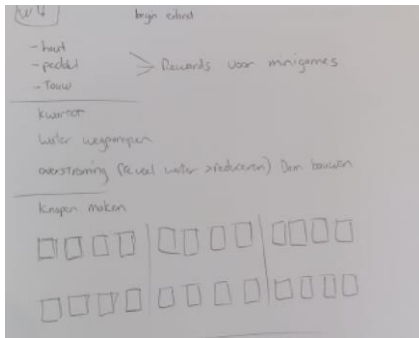 W4
begin eiland
- hout
- peddel
- Touw
Rewards voor minigames
kwartet
water wegpompen
overstroming (te veel water > reduceren) Dam bouwen
Knopen maken